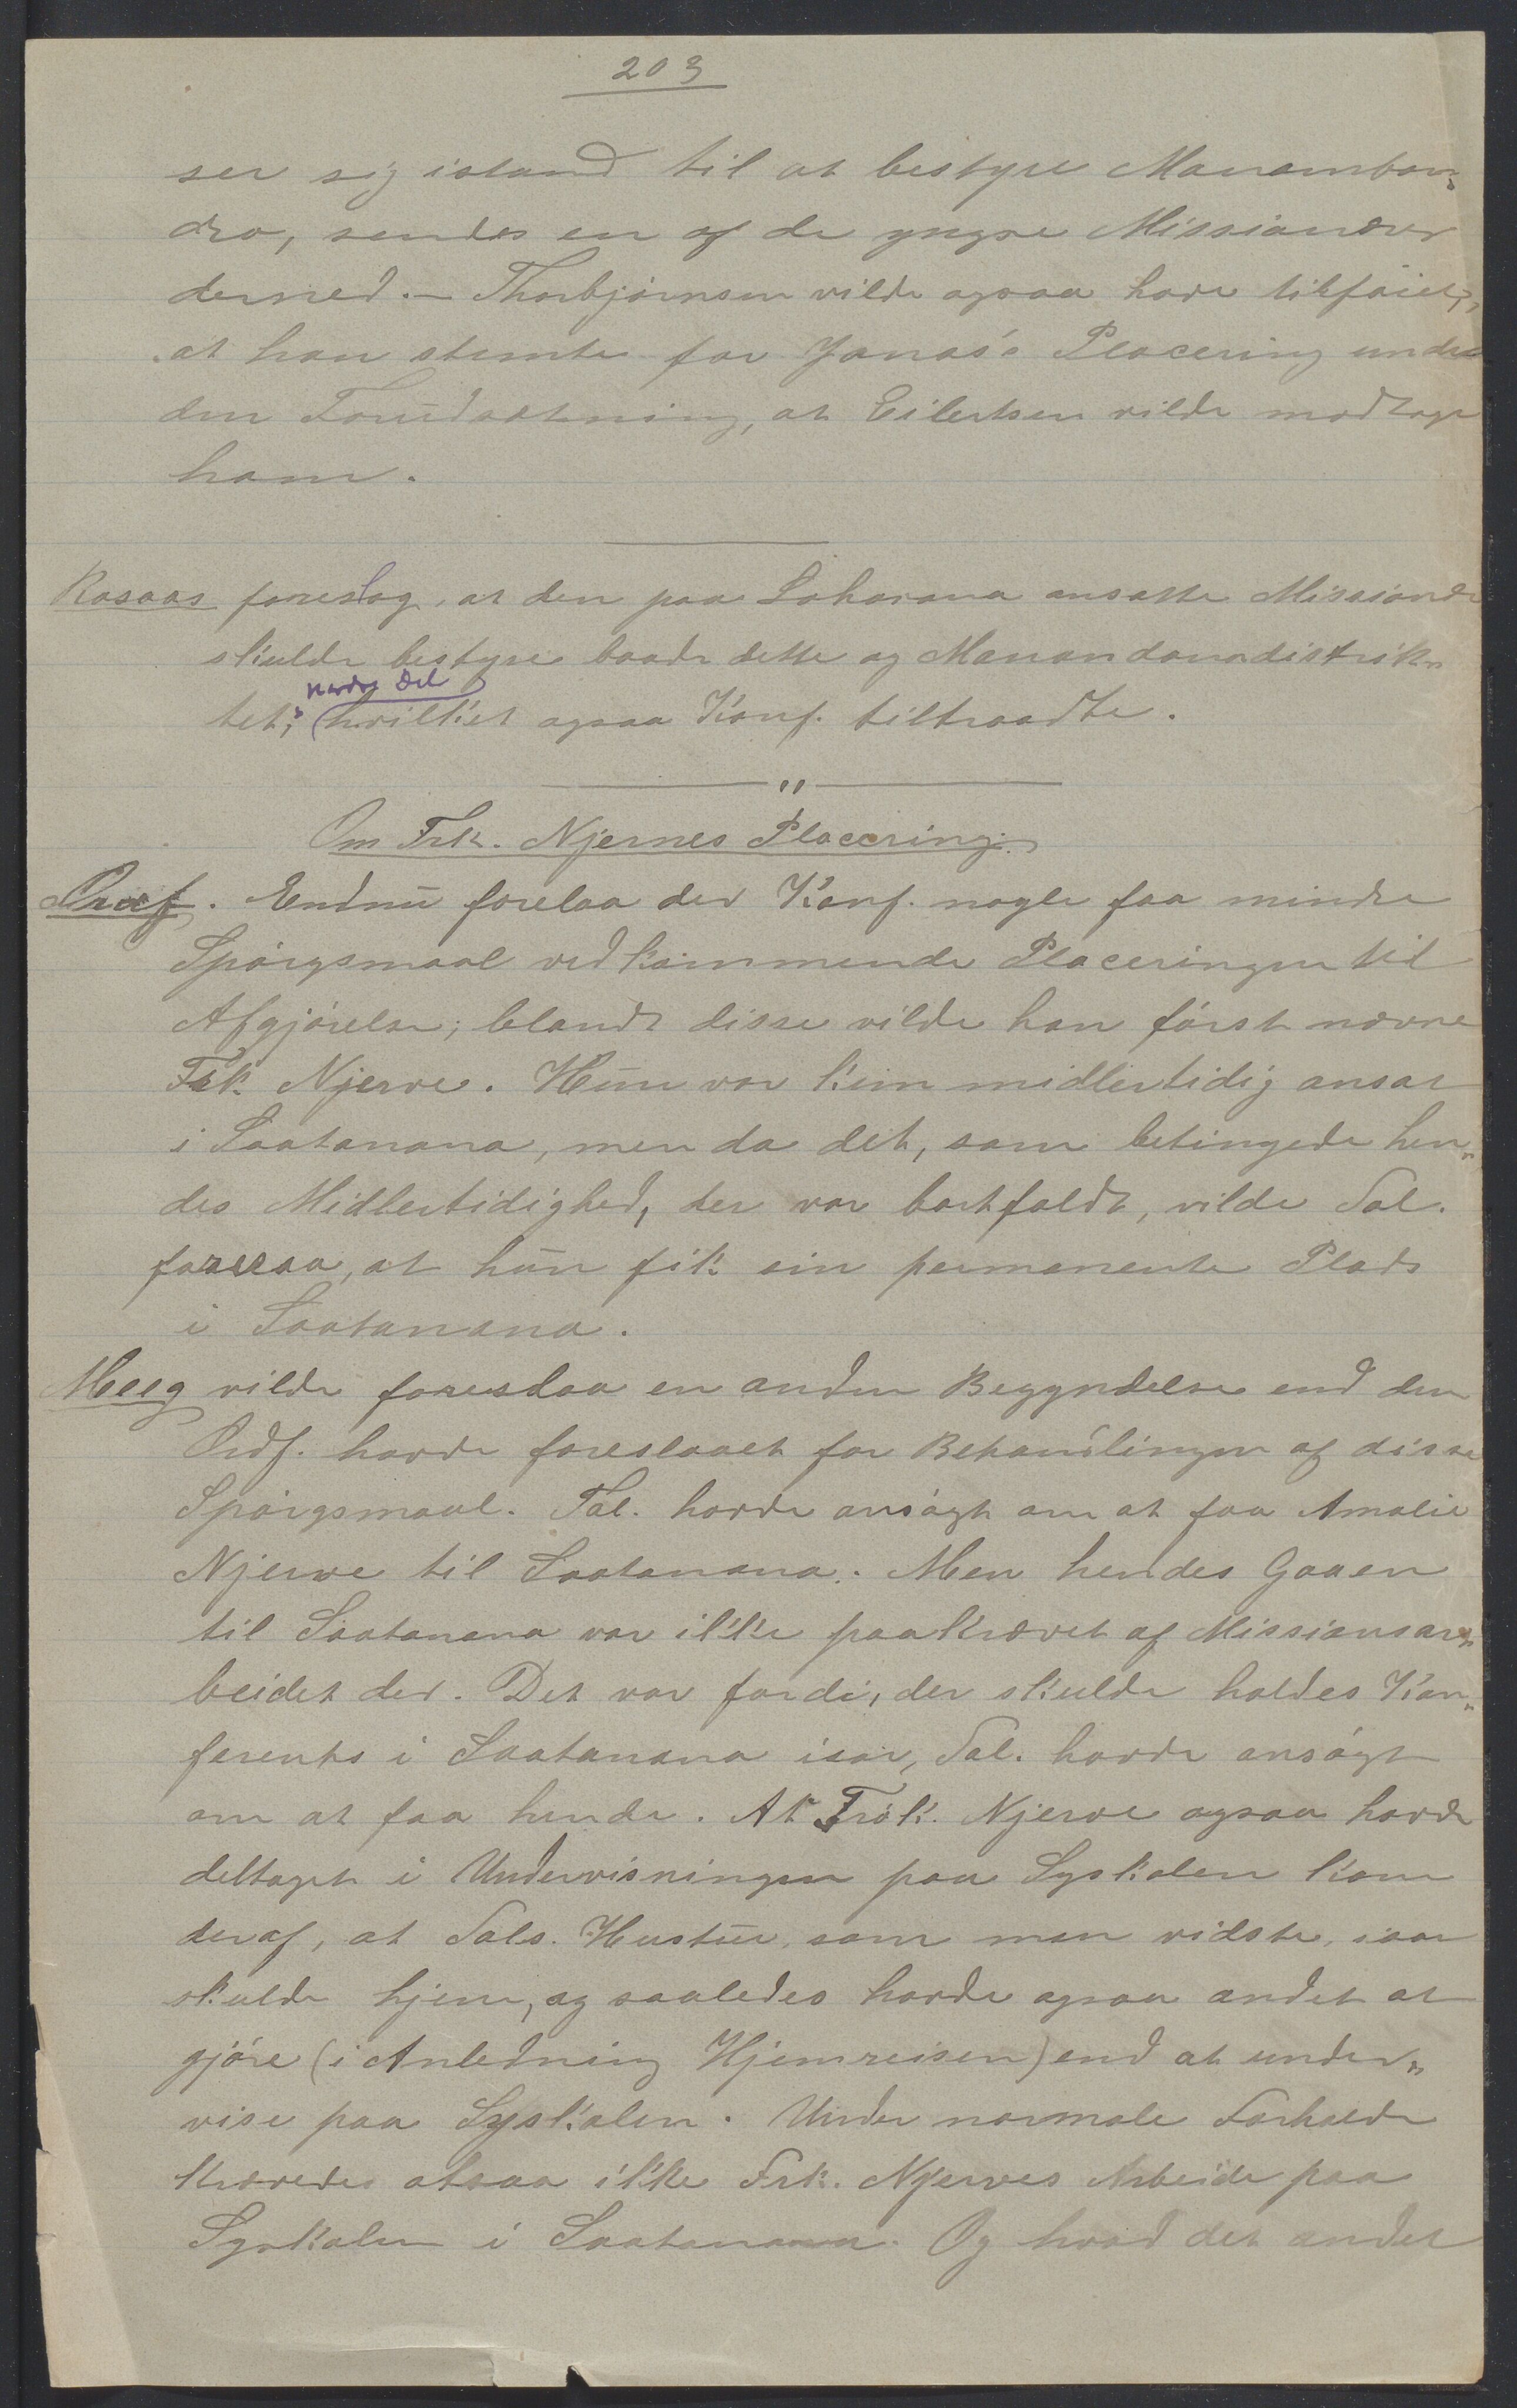 203
ser sig istand til at bestyre Manambon„
dro, sendes en af de yngre Missionærer
derned. — Thorbjørnsen vilde ogsaa have tilføiet,
at han stemte for Jonas's Placering under
den Forudsætning, at Eilertsen vilde modtage
ham.
Rosaas foreslog, at den paa Loharano ansatte Missionær
skulde bestyre baade dette og Manandonadistrik„
nordre Del
tet, hvilket ogsaa Konf. tiltraadte.
"
Om Frk. Njerves Placering.
Ordf. Endnu forelaa der Konf. nogle faa mindre
Spørgsmaal vedkommende Placeringen til
Afgjørelse; blandt disse vilde han først nævne
Frk. Njerve. Hun var kun midlertidig ansat
i Soatanana, men da det, som betingede hen„
des Midlertidighed, her var bortfaldt, vilde Tal.
foreslaa, at hun fik sin permanente Plads
i Soatanana.
Meeg vilde foreslaa en anden Begyndelse end den
Ordf. havde foreslaaet for Behandlingen af disse
Spørgsmaal. Tal. havde ansøgt om at faa Amalie
Njerve til Soatanana. Men hendes Gaaen
til Soatanana var ikke paakrævet af Missionsar„
beidet der. Det var fordi, der skulde holdes Kon„
ferents i Soatanana iaar, Tal. havde ansøgt
om at faa hende. At Frøk. Njerve ogsaa havde
deltaget i Undervisningen paa Syskolen kom
deraf, at Tals. Hustru, som man vidste, iaar
skulde hjem, og saaledes havde ogsaa andet at
gjøre (i Anledning Hjemreisen) end at under„
vise paa Syskolen. Under normale Forholde
krævedes altsaa ikke Frk. Njerves Arbeide paa
Syskolen i Soatanana. Og hvad det andet